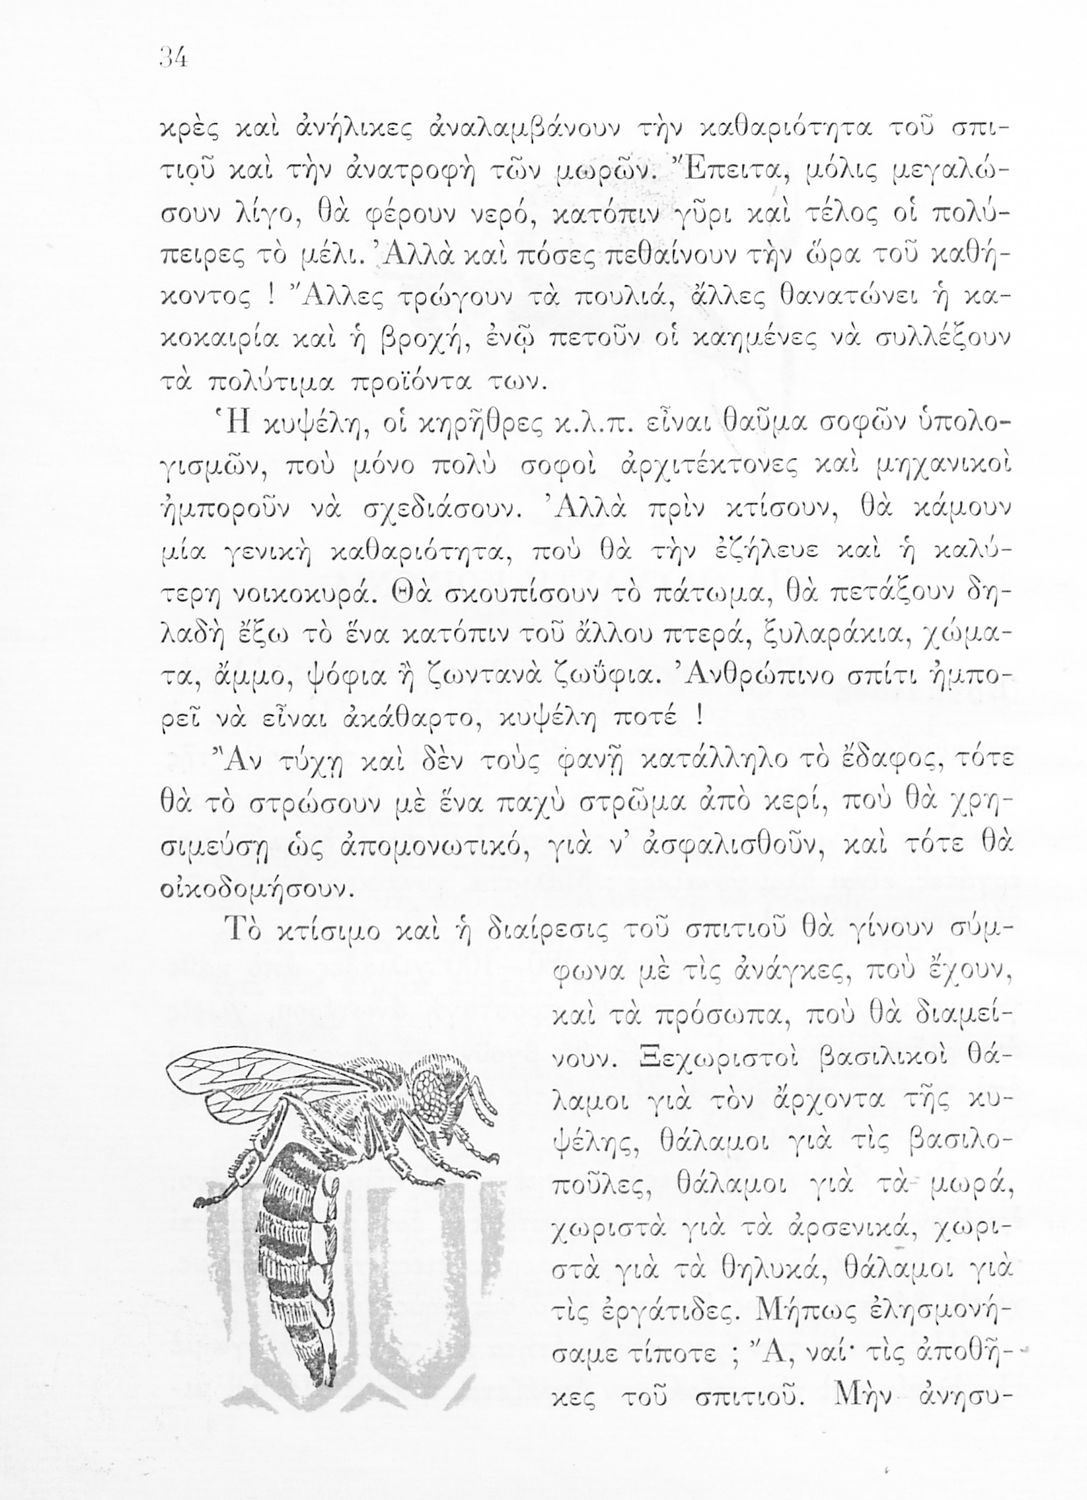 34
κρὲς καὶ ἀνήλικες ἀναλαμβάνουν τὴν καθαριότητα τοῦ σπι-
τιοῦ καὶ τὴν ἀνατροφὴ τῶν μωρῶν. Ἔπειτα, μόλις μεγαλώ-
σουν λίγο, θὰ φέρουν νερό, κατόπιν γῦρι καὶ τέλος οἱ πολύ-
πειρες τὸ μέλι. Ἀλλὰ καὶ πόσες πεθαίνουν τὴν ὥρα τοῦ καθή-
κοντος ! Ἄλλες τρώγουν τὰ πουλιά, ἄλλες θανατώνει ἡ κα-
κοκαιρία καὶ ἡ βροχή, ἐνῷ πετοῦν οἱ καημένες νὰ συλλέξουν
τὰ πολύτιμα προϊόντα των.
Ἡ κυψέλη, οἱ κηρῆθρες κ.λ.π. εἶναι θαῦμα σοφῶν ὑπολο-
γισμῶν, ποὺ μόνο πολὺ σοφοὶ ἀρχιτέκτονες καὶ μηχανικοὶ
ἠμποροῦν νὰ σχεδιάσουν. Ἀλλὰ πρὶν κτίσουν, θὰ κάμουν
μία γενικὴ καθαριότητα, ποὺ θὰ τὴν ἐζήλευε καὶ ἡ καλύ-
τερη νοικοκυρά. Θὰ σκουπίσουν τὸ πάτωμα, θὰ πετάξουν δη-
λαδὴ ἔξω τὸ ἕνα κατόπιν τοῦ ἄλλου πτερά, ξυλαράκια, χώμα-
τα, ἄμμο, ψόφια ἢ ζωντανὰ ζωΰφια. Ἀνθρώπινο σπίτι ἠμπο-
ρεῖ νὰ εἶναι ἀκάθαρτο, κυψέλη ποτέ !
Ἂν τύχῃ καὶ δὲν τοὺς φανῇ κατάλληλο τὸ ἔδαφος, τότε
θὰ τὸ στρώσουν μὲ ἕνα παχὺ στρῶμα ἀπὸ κερί, ποὺ θὰ χρη-
σιμεύσῃ ὡς ἀπομονωτικό, γιὰ ν’ ἀσφαλισθοῦν, καὶ τότε θὰ
οἰκοδομήσουν.
Τὸ κτίσιμο καὶ ἡ διαίρεσις τοῦ σπιτιοῦ θὰ γίνουν σύμ-
φωνα μὲ τὶς ἀνάγκες, ποὺ ἔχουν,
καὶ τὰ πρόσωπα, ποὺ θὰ διαμεί-
νουν. Ξεχωριστοὶ βασιλικοὶ θά-
λαμοι γιὰ τὸν ἄρχοντα τῆς κυ-
ψέλης, θάλαμοι γιὰ τὶς βασιλο-
ποῦλες, θάλαμοι γιὰ τὰ μωρά,
χωριστὰ γιὰ τὰ ἀρσενικά, χωρι-
στὰ γιὰ τὰ θηλυκά, θάλαμοι γιὰ
τὶς ἐργάτιδες. Μήπως ἐλησμονή-
σαμε τίποτε ; Ἄ, ναί· τὶς ἀποθῆ-
κες τοῦ σπιτιοῦ. Μὴν ἀνησυ-